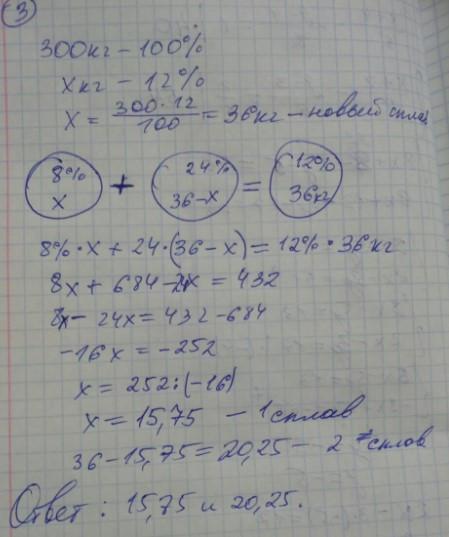 3
300кг - 100%
x кг - 12%
x = 300·12/100 = 36кг - новый сплав
8% x + 24% 36-x = 12% 36кг
8%·x + 24·(36-x) = 12%·36кг
8x + 684 - 24x = 432
8x - 24x = 432 - 684
-16x = -252
x = 252:(-16)
x = 15,75 - 1 сплав
36 - 15,75 = 20,25 - 2 сплав
Ответ: 15,75 и 20,25.